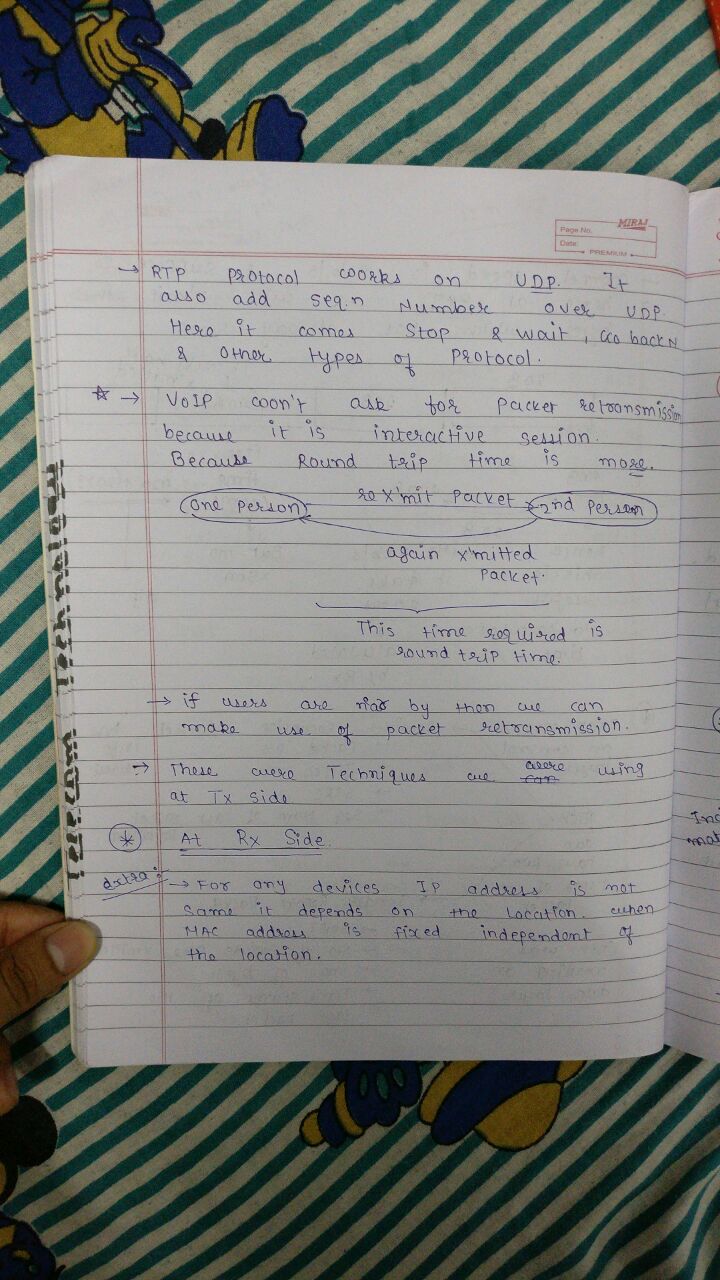 MIRAJ
Page No.
Date:
PREMIUM
→ RTP Protocol works on UDP. It
also add seq.n Number over UDP.
Here it comes Stop & wait, Go back N
& Other types of Protocol.
☆ → VoIP won't ask for Packet retransmission
because it is interactive session.
Because Round trip time is more.
One Person re X'mit Packet 2nd Person
again X'mitted
Packet.
This time required is
round trip time.
→ if users are by then we can
make use of packet retransmission.
→ These were Techniques we were using
at Tx side
* At Rx Side
extra: → For any devices IP address is not
Same it depends on the location. when
MAC address is fixed independent of
the location.